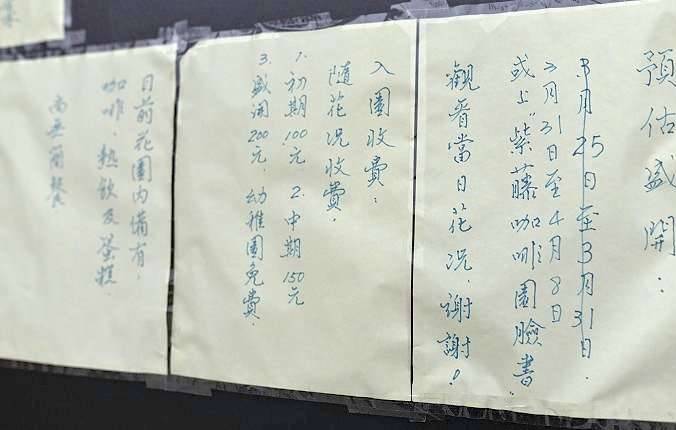 預估盛開：
3月25日至3月31日.
3月31日至4月8日
或上"紫藤咖啡園臉書.
觀看當日花況.謝謝!
入園收費：
隨花況收費.
1.初期100元 2.中期150元
3.盛開200元.幼稚園免費.
目前花園內備有.
咖啡.熱飲及蛋糕.
尚無簡餐